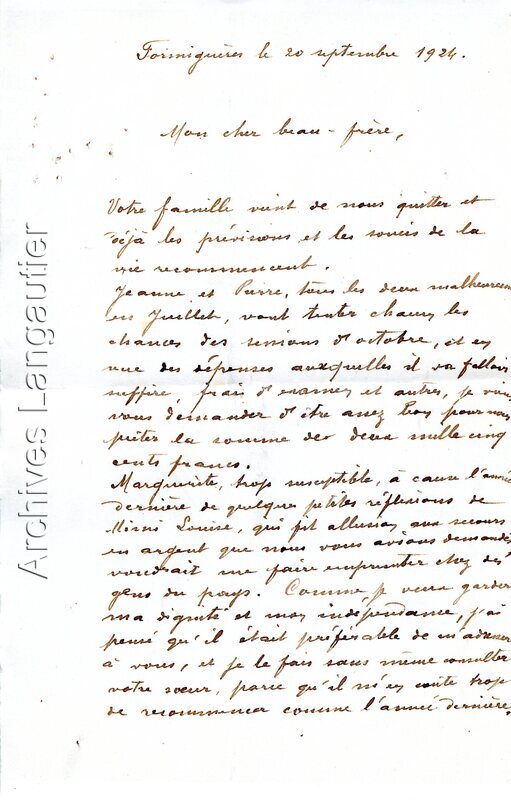 Formiguères le 20 septembre 1924.
Mon cher beau-frère,
Votre famille vient de nous quitter et
déjà les prévisions et les soucis de la
vie recommencent.
Jeanne et Pierre, tous les deux malheureux
en Juillet, vont tenter chacun les
chances des sessions d'octobre, et en
vue des dépenses auxquelles il va falloir
suffire, frais d'examen et autres, je viens
vous demander d'être assez bon pour nous
prêter la somme de deux mille cinq
cents francs.
Marguerite, trop susceptible, à cause l'année
dernière de quelques petites réflexions de
Mimi Louise, qui fit allusion aux secours
en argent que nous vous avions demandés
voudrait me faire emprunter chez des
gens du pays. Comme je veux garder
ma dignité et mon indépendance, j'ai
pensé qu'il était préférable de m'adresser
à vous, et je le fais sans même consulter
votre sœur, parce qu'il m'en coûte trop
de recommencer comme l'année dernière,
Archives Langautier